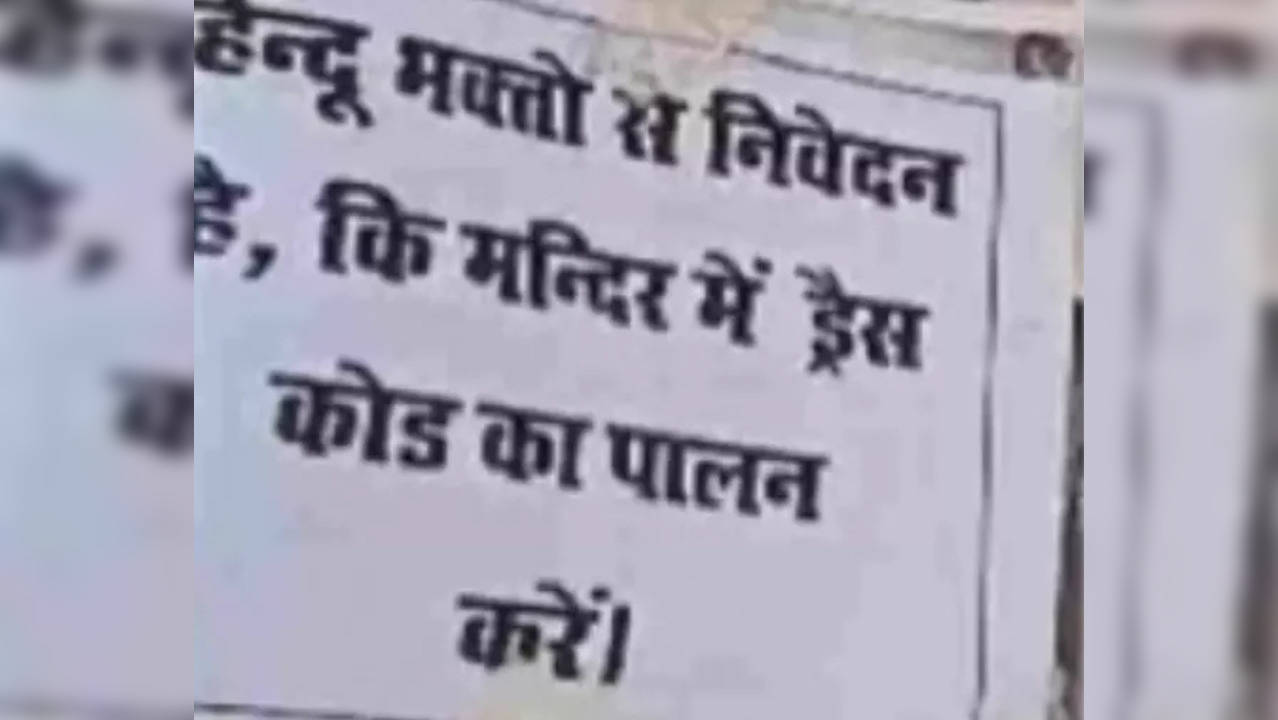 हिन्दू भक्तो से निवेदन
है, कि मन्दिर में ड्रैस
कोड का पालन
करें।